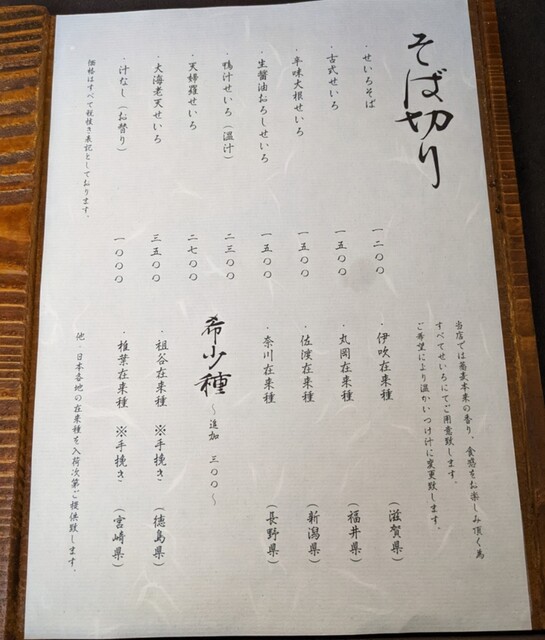 そば切り
・せいろそば 一二〇〇
・古式せいろ 一五〇〇
・辛味大根せいろ 一五〇〇
・生醤油おろしせいろ 一五〇〇
・鴨汁せいろ（温汁） 二三〇〇
・天婦羅せいろ 二七〇〇
・大海老天せいろ 三五〇〇
・汁なし（お替り） 一〇〇〇
価格はすべて税抜き表記としております。
当店では蕎麦本来の香り、食感をお楽しみ頂く為
すべてせいろにてご用意致します。
ご希望により温かいつけ汁に変更致します。
・伊吹在来種 （滋賀県）
・丸岡在来種 （福井県）
・佐渡在来種 （新潟県）
・奈川在来種 （長野県）
希少種 〜追加 三〇〇〜
・祖谷在来種 ※手挽き （徳島県）
・椎葉在来種 ※手挽き （宮崎県）
他・日本各地の在来種を入荷次第ご提供致します。